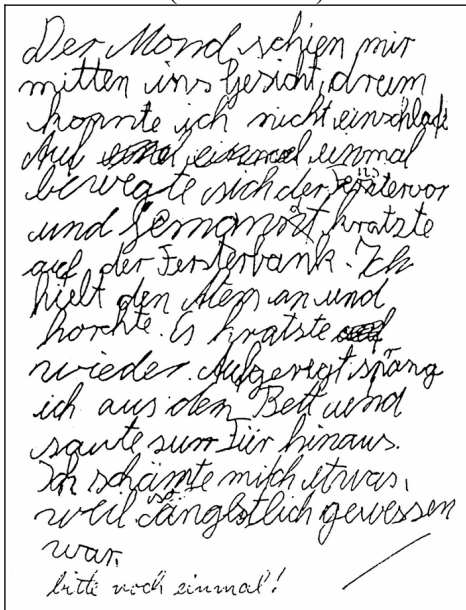 Der Mond schien mir
mitten ins Gesicht, drum
konnte ich nicht einschlafe
Auf einmal
bewegte sich der Fenstervor
und jemand kratzte
auf der Fensterbank. Ich
hielt den Atem an und
horchte. Es kratzte
wieder. Aufgeregt spang
ich aus dem Bett und
saute sum Tür hinaus.
Ich schämte mich etwas,
weil ich so ängstlich gewessen
war.
bitte noch einmal!